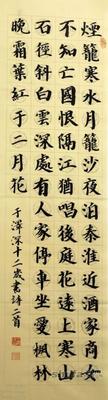 煙籠寒水月籠沙夜泊秦淮近酒家商女
不知亡國恨隔江猶唱後庭花遠上寒山
石徑斜白雲深處有人家停車坐愛楓林
晚霜葉紅于二月花
于澤深十二歲書詩二首